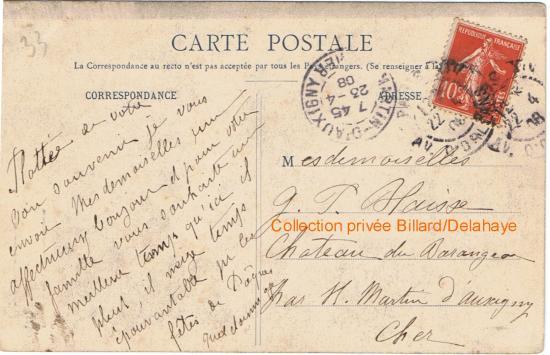 33
CARTE POSTALE
La Correspondance au recto n'est pas acceptée par tous les Pays étrangers. (Se renseigner à la
CORRESPONDANCE
ADRESSE
RÉPUBLIQUE FRANÇAISE
10
POSTES
MARTIN-D'AUXIGNY
7 45
23-4
08
22 4
08
AV.
Flattée de votre
bon souvenir je vous
envoie Mesdemoiselles un
affectueux bonjour et pour votre
famille vous souhaite un
meilleur temps qu'ici il
pleut, il neige temps
épouvantable pr les
fêtes de Pâques
Mesdemoiselles
G. T.
Collection privée Billard/Delahaye
Chateau du Barangeon
par St Martin d'auxigny
Cher